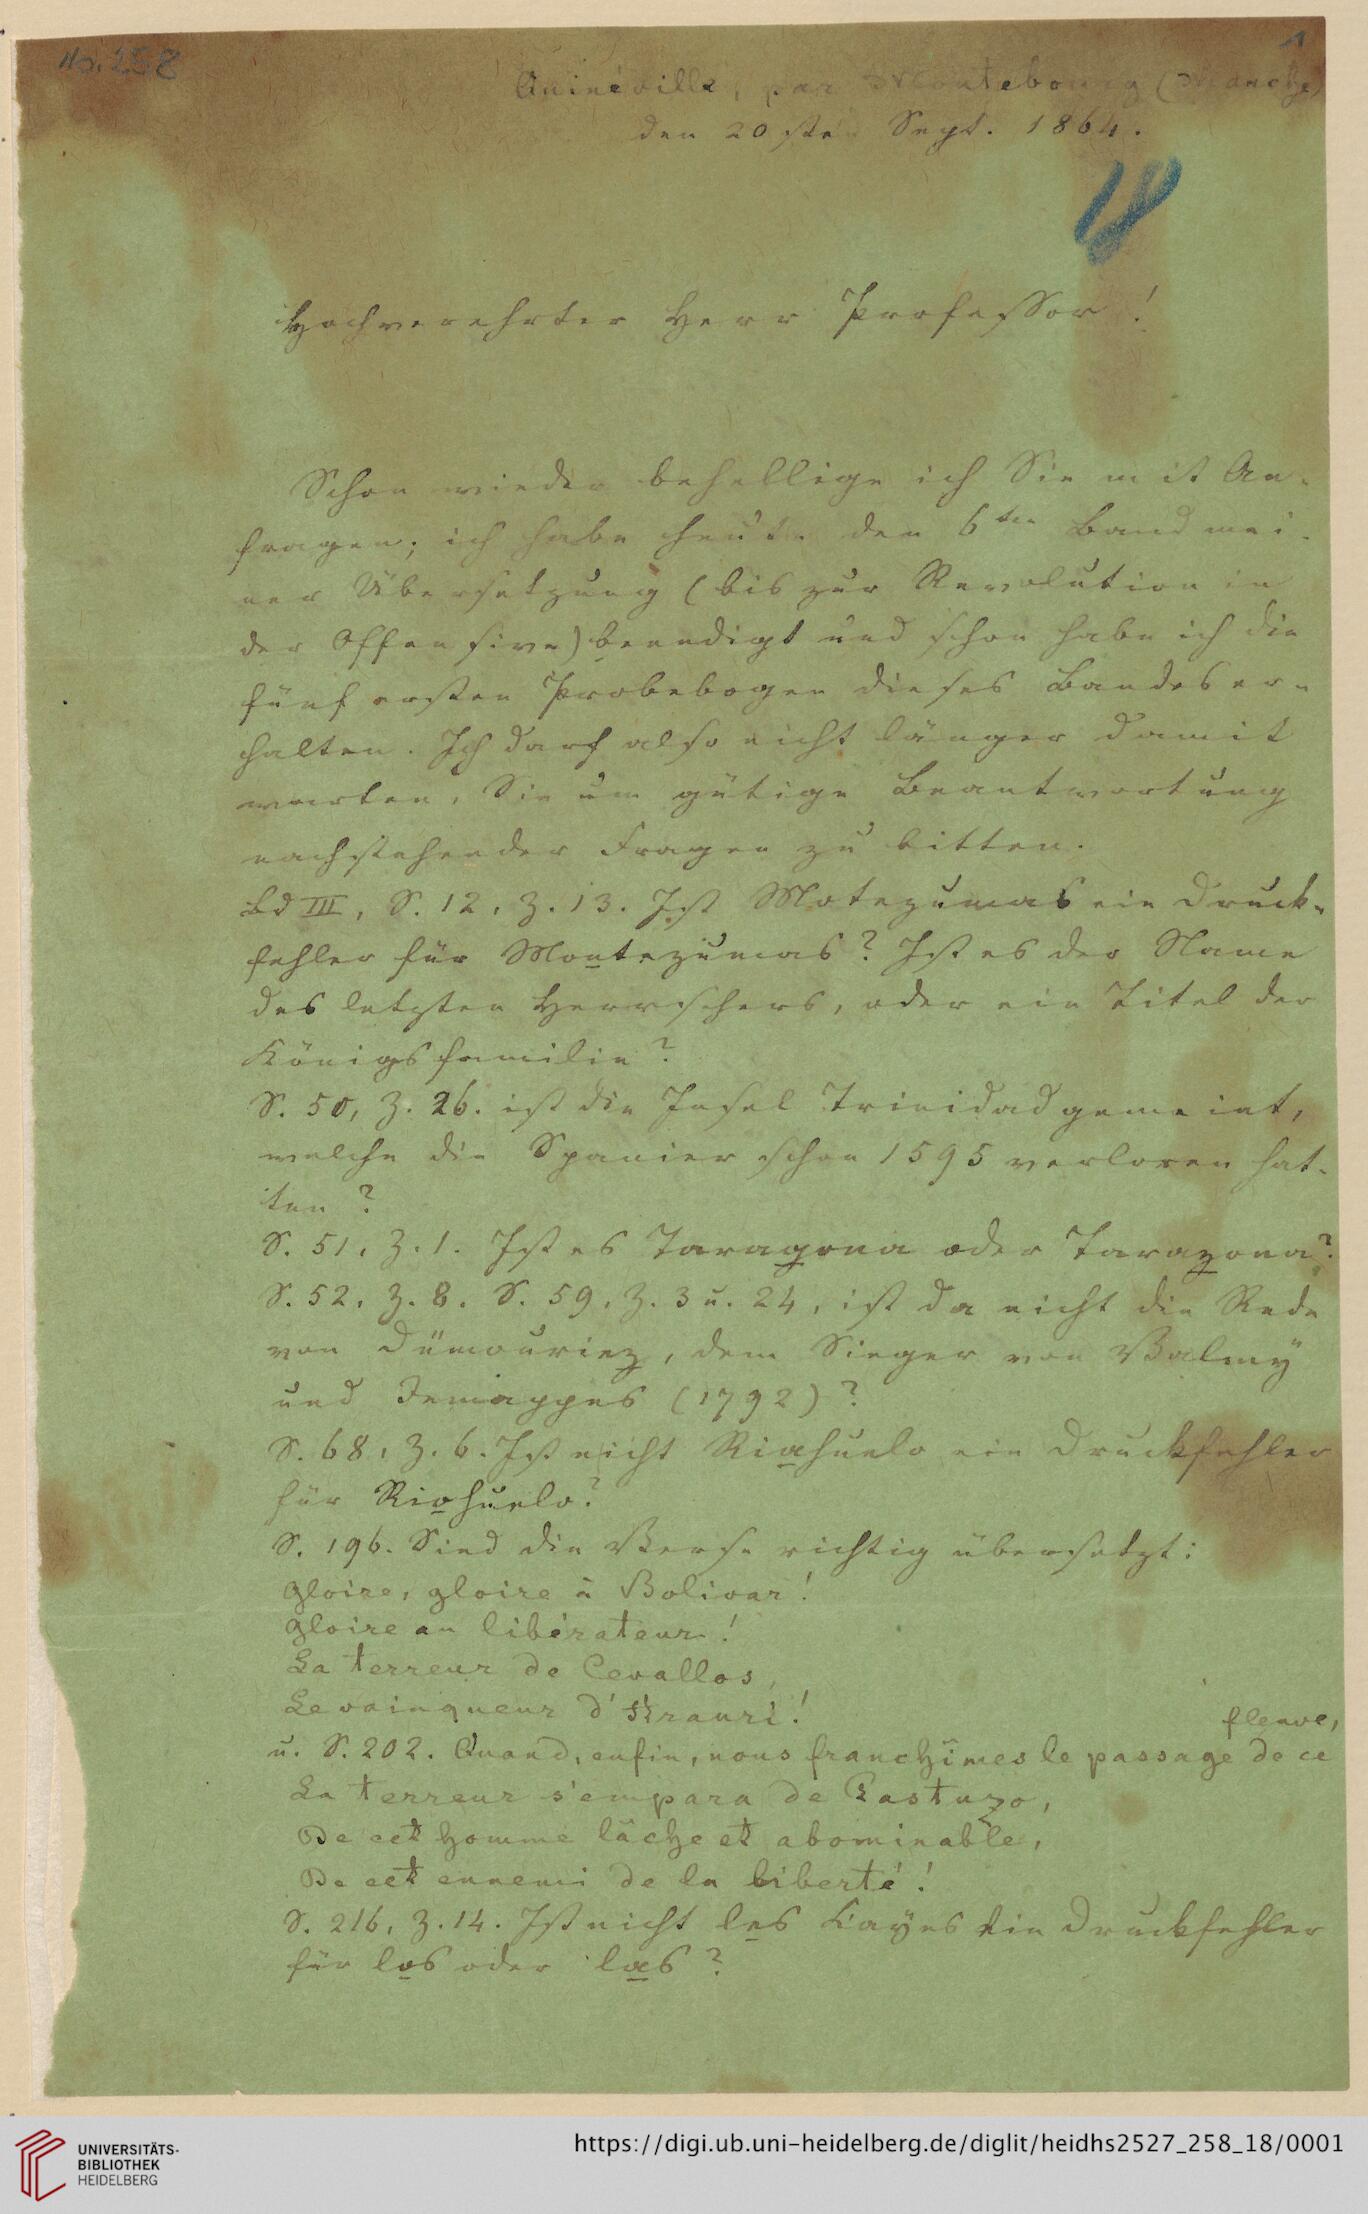 No. 258
1
Quinéville, par Montebourg (Manche)
den 20sten Sept. 1864.
18
Hochverehrter Herr Professor!
Schon wieder behellige ich Sie mit An-
fragen; ich habe heute den 6ten Band mei-
ner Übersetzung (bis zur Revolution in
der Offensive) beendigt und schon habe ich die
fünf ersten Probebogen dieses Bandes er-
halten. Ich darf also nicht länger damit
warten, Sie um gütige Beantwortung
nachstehender Fragen zu bitten.
Bd III, S. 12, Z. 13. Ist Motezumas ein Druck-
fehler für Montezumas? Ist es der Name
des letzten Herrschers, oder ein Titel der
Königsfamilie?
S. 50, Z. 26. ist die Insel Trinidad gemeint,
welche die Spanier schon 1595 verloren hat-
ten?
S. 51, Z. 1. Ist es Taragona oder Tarazona?
S. 52, Z. 8. S. 59, Z. 3 u. 24, ist da nicht die Rede
von Dümouriez, dem Sieger von Valmy
und Jemappes (1792)?
S. 68, Z. 6. Ist nicht Riahuelo ein Druckfehler
für Riohuelo?
S. 196. Sind die Verse richtig übersetzt:
Gloire, gloire à Bolivar!
Gloire au libérateur!
La terreur de Cevallos,
Le vainqueur d'
u. S. 202. Quand, enfin, nous franchîmes le passage de ce
fleuve,
La terreur s'empara de Pastuzo,
De cet homme lâche et abominable,
De cet ennemi de la liberté!
S. 216, Z. 14. Ist nicht les Cayes ein Druckfehler
für los oder las?
UNIVERSITÄTS-
BIBLIOTHEK
HEIDELBERG
https://digi.ub.uni-heidelberg.de/diglit/heidhs2527_258_18/0001